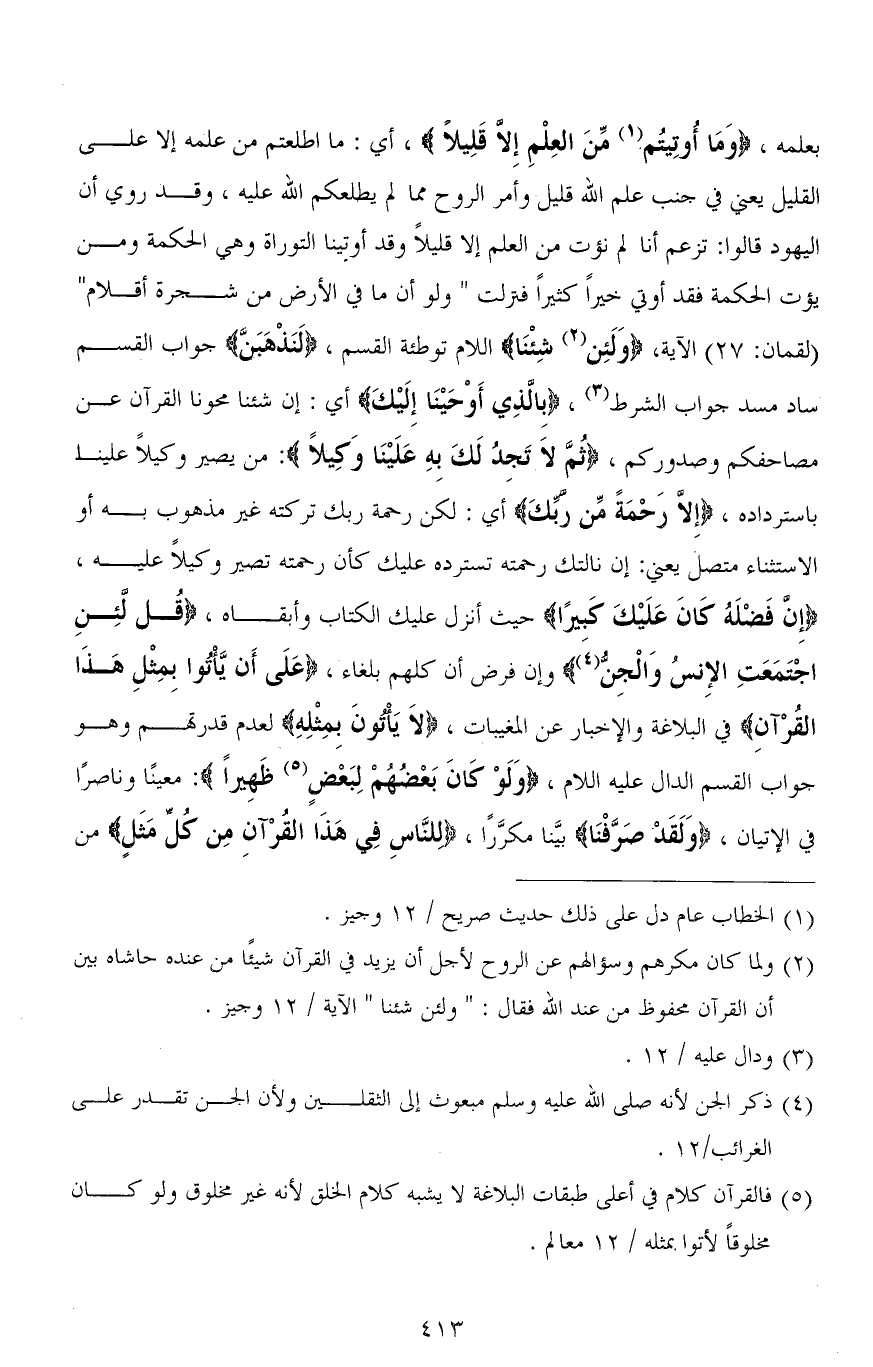 بعلمه ، ﴿وَمَا أُوتِيتُم(١) مِّنَ العِلْمِ إِلاَّ قَلِيلاً ﴾ ، أي : ما اطلعتم من علمه إلا على
القليل يعني في جنب علم الله قليل وأمر الروح مما لم يطلعكم الله عليه ، وقد روي أن
اليهود قالوا: تزعم أنا لم نؤت من العلم إلا قليلاً وقد أوتينا التوراة وهي الحكمة ومن
يؤت الحكمة فقد أوتي خيراً كثيراً فنزلت " ولو أن ما في الأرض من شجرة أقلام"
(لقمان: ٢٧) الآية، ﴿وَلَئِن(٢) شِئْنَا﴾ اللام توطئة القسم ، ﴿لَنَذْهَبَنَّ﴾ جواب القسم
ساد مسد جواب الشرط(٣) ، ﴿بِالَّذِي أَوْحَيْنَا إِلَيْكَ﴾ أي : إن شئنا محونا القرآن عن
مصاحفكم وصدوركم ، ﴿ثُمَّ لاَ تَجِدُ لَكَ بِهِ عَلَيْنَا وَكِيلاً ﴾: من يصير وكيلاً علينا
باسترداده ، ﴿إِلاَّ رَحْمَةً مِّن رَّبِّكَ﴾ أي : لكن رحمة ربك تركته غير مذهوب به أو
الاستثناء متصل يعني: إن نالتك رحمته تسترده عليك كأن رحمته تصير وكيلاً عليه ،
﴿إِنَّ فَضْلَهُ كَانَ عَلَيْكَ كَبِيرًا﴾ حيث أنزل عليك الكتاب وأبقاه ، ﴿قُل لَّئِنِ
اجْتَمَعَتِ الإِنسُ وَالْجِنُّ(٤)﴾ وإن فرض أن كلهم بلغاء ، ﴿عَلَى أَن يَأْتُوا بِمِثْلِ هَذَا
القُرْآنِ﴾ في البلاغة والإخبار عن المغيبات ، ﴿لاَ يَأْتُونَ بِمِثْلِهِ﴾ لعدم قدرتهم وهو
جواب القسم الدال عليه اللام ، ﴿وَلَوْ كَانَ بَعْضُهُمْ لِبَعْضٍ(٥) ظَهِيراً ﴾: معينًا وناصرًا
في الإتيان ، ﴿وَلَقَدْ صَرَّفْنَا﴾ بيَّنا مكرَّرًا ، ﴿لِلنَّاسِ فِي هَذَا القُرْآنِ مِن كُلِّ مَثَلٍ﴾ من
(١) الخطاب عام دل على ذلك حديث صريح / ١٢ وجيز .
(٢) ولما كان مكرهم وسؤالهم عن الروح لأجل أن يزيد في القرآن شيئًا من عنده حاشاه بين
أن القرآن محفوظ من عند الله فقال : " ولئن شئنا " الآية / ١٢ وجيز .
(٣) ودال عليه / ١٢ .
(٤) ذكر الجن لأنه صلى الله عليه وسلم مبعوث إلى الثقلين ولأن الجن تقدر على
الغرائب/١٢ .
(٥) فالقرآن كلام في أعلى طبقات البلاغة لا يشبه كلام الخلق لأنه غير مخلوق ولو كان
مخلوقاً لأتوا بمثله / ١٢ معالم .
٤١٣